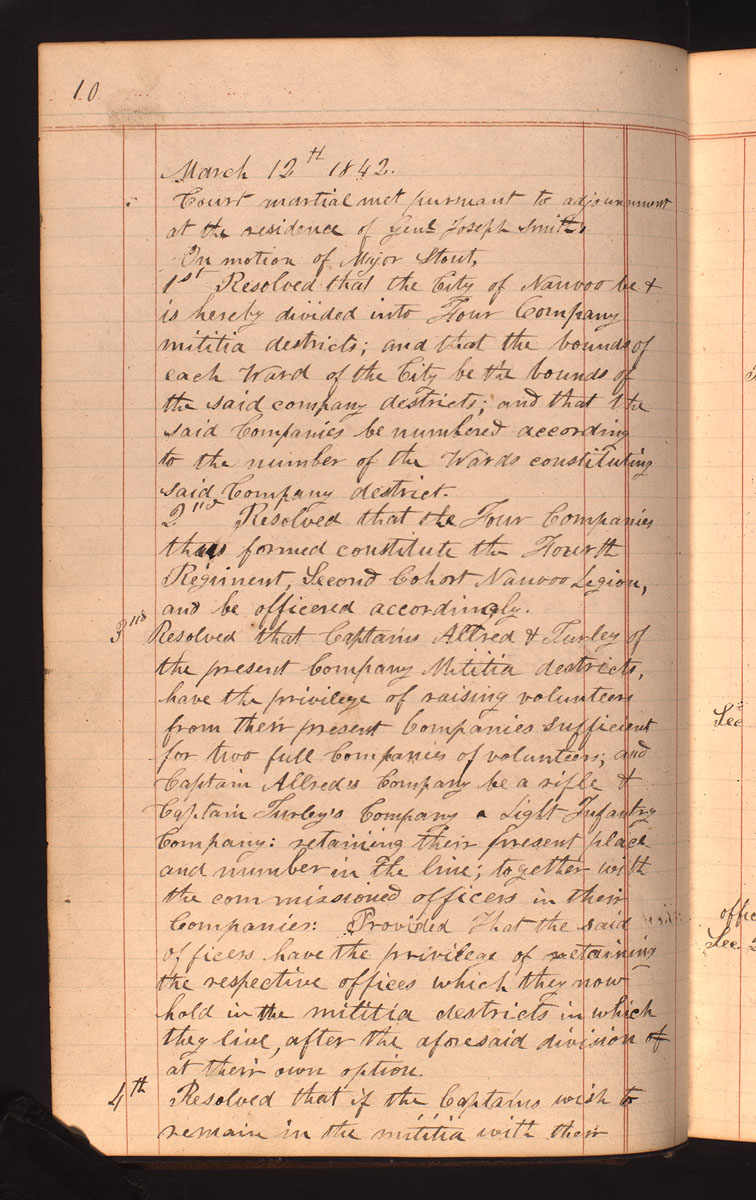 10
March 12th 1842.
Court martial met pursuant to adjournment
at the residence of Genl. Joseph Smith,
On motion of Major Stout,
1st Resolved that the City of Nauvoo be &
is hereby divided into Four Company
mititia destricts; and that the bounds of
each Ward of the City be the bounds of
the said company destricts; and that the
said Companies be numbered according
to the number of the Wards constituting
said Company destrict.
2nd Resolved that the Four Companies
thus formed constitute the Fourth
Regiment, Second Cohort Nauvoo Legion,
and be officered accordingly.
3rd Resolved that Captains Allred & Turley of
the present Company Mititia destricts,
have the privilege of raising volunteers
from their present Companies sufficient
for two full Companies of volunteers; and
Captain Allred's Company be a rifle &
Captain Turley's Company a Light Infantry
Company: retaining their present place
and number in the line; together with
the commissioned officers in their
Companies: Provided that the said
officers have the privilege of retaining
the respective offices which they now
hold in the mititia destricts in which
they live, after the aforesaid division of
at their own option.
4th Resolved that if the Captains wish to
remain in the mititia with their
Sec
offic
Sec. 2